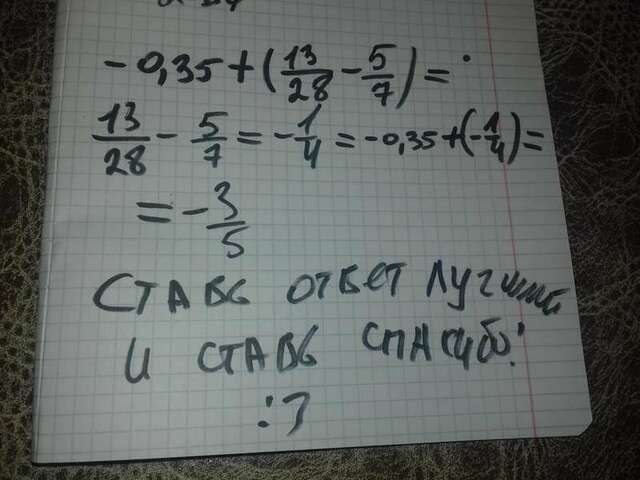 -0,35+(13/28-5/7)=
13/28-5/7=-1/4=-0,35+(-1/4)=
=-3/5
СТАВЬ ОТВЕТ ЛУЧШИЕ
И СТАВЬ СПАСИБО!
:7